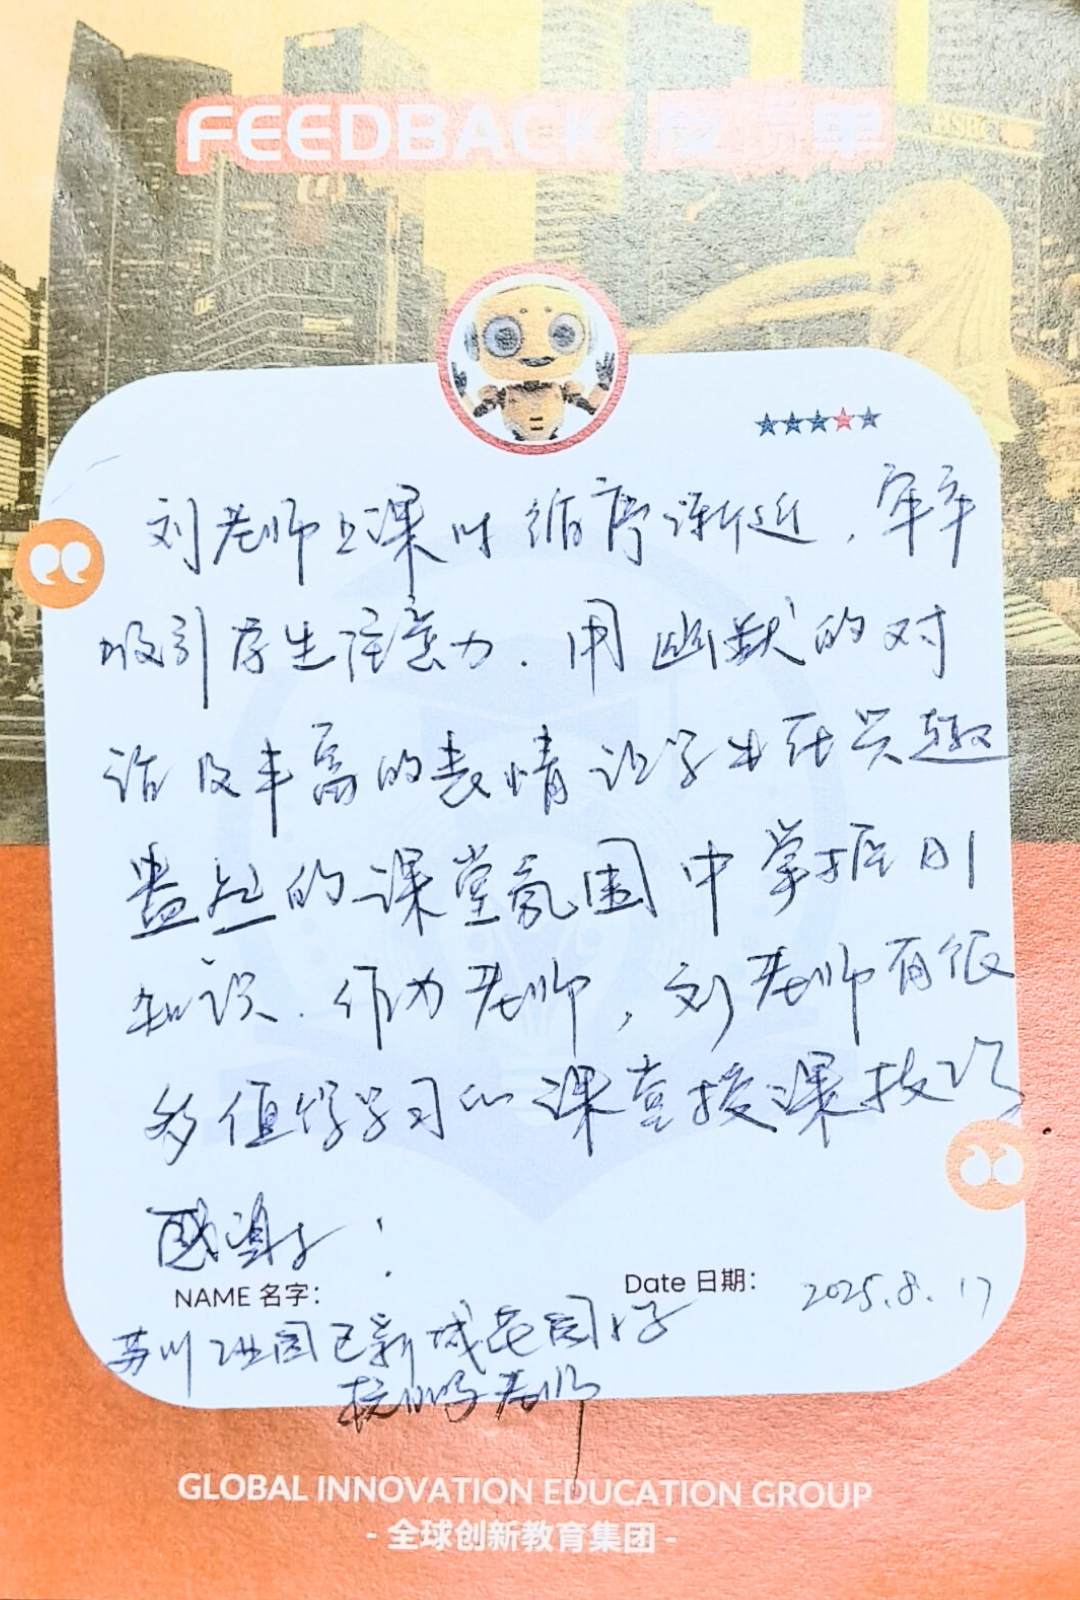 FEEDBACK 反馈单
HSBC
刘老师上课时循序渐近，牢牢
吸引学生注意力．用幽默的对
话及丰富的表情让学生在兴趣
盎然的课堂氛围中掌握到
知识．作为老师，刘老师有很
多值得学习的课堂授课技巧
感谢！
NAME 名字：
Date 日期： 2025.8.17
苏州工业园区新城花园小学
老师
GLOBAL INNOVATION EDUCATION GROUP
- 全球创新教育集团 -